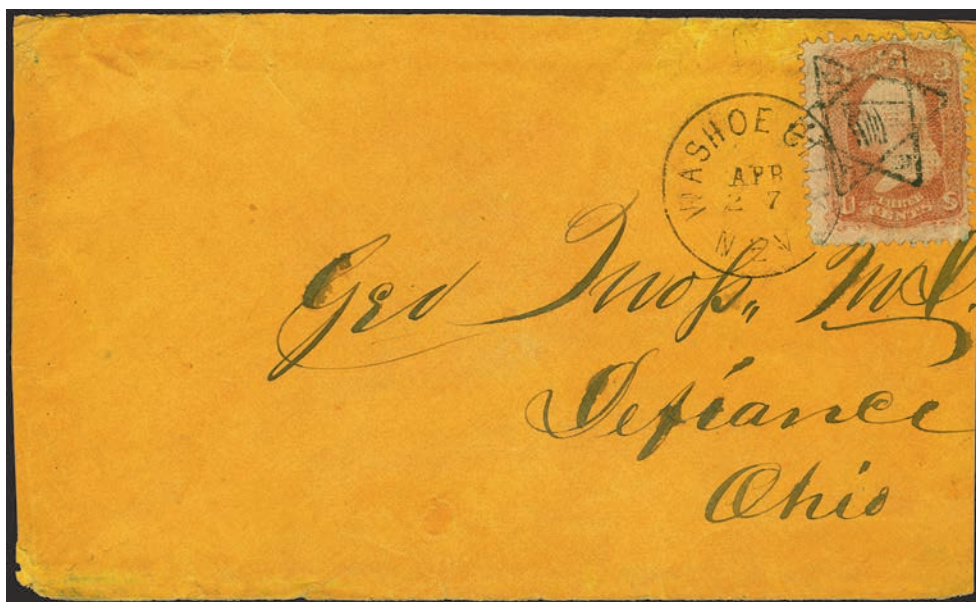 WASHOE CY
APR
27
NEV
3
U THREE S
CENTS
Geo M.D.
Defiance
Ohio